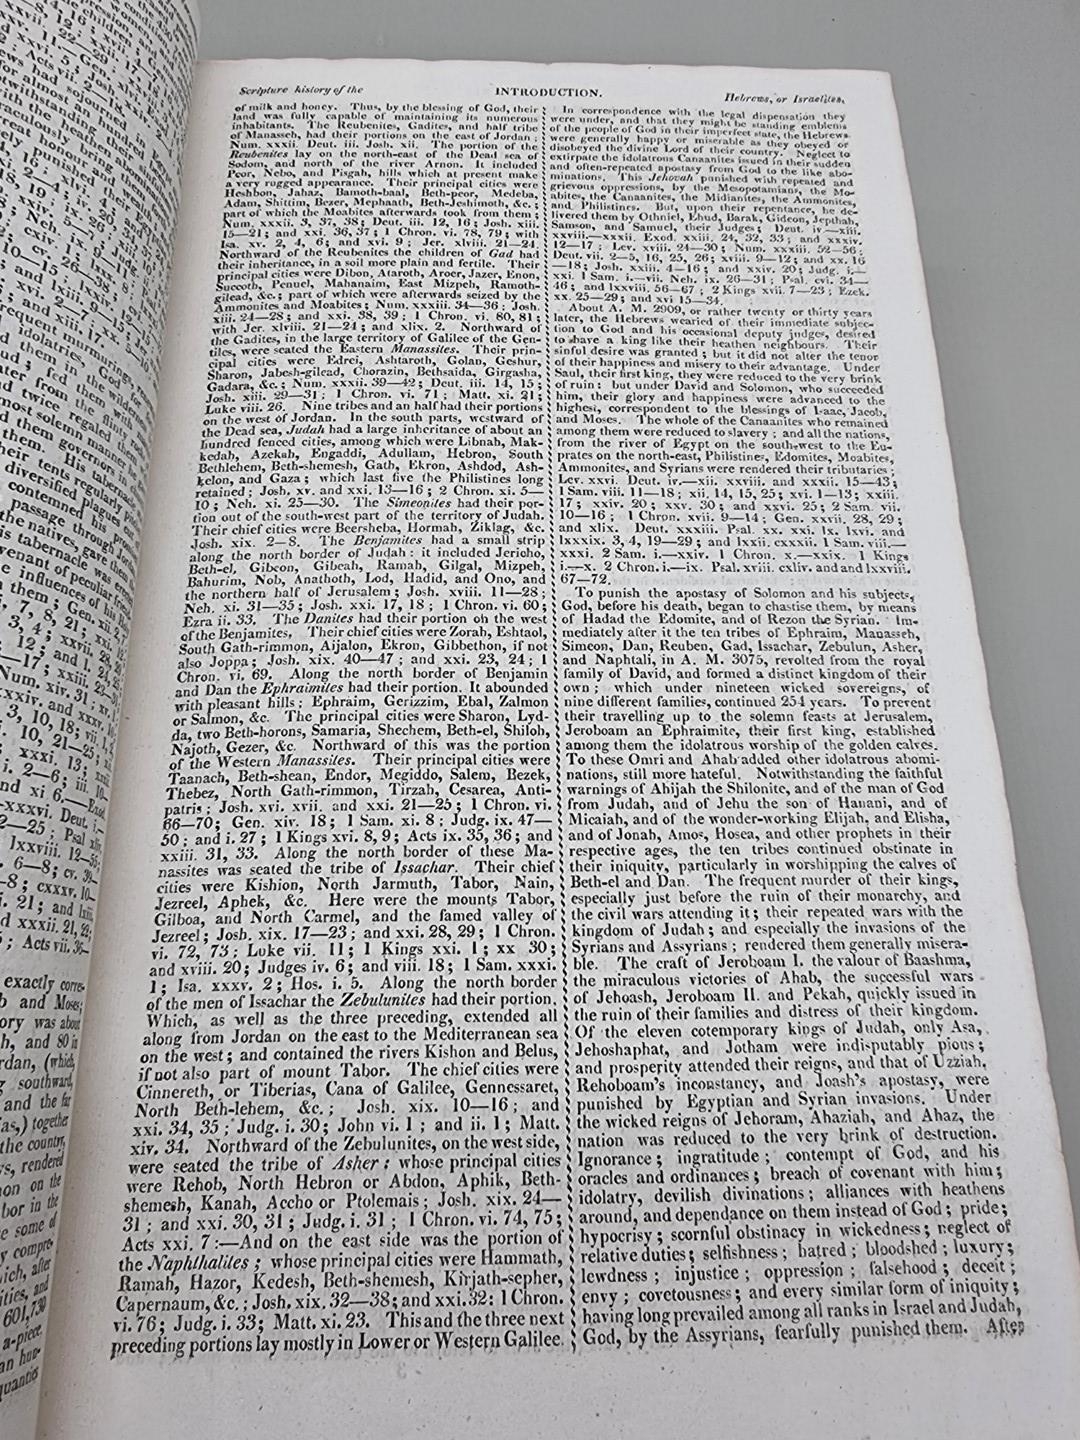 Scripture history of the
INTRODUCTION.
Hebrews, or Israelites,
of milk and honey. Thus, by the blessing of God, their
land was fully capable of maintaining its numerous
inhabitants. The Reubenites, Gadites, and half tribe
of Manasseh, had their portions on the east of Jordan;
Num. xxxii. Deut. iii. Josh. xii. The portion of the
Reubenites lay on the north-east of the Dead sea of
Sodom, and north of the river Arnon. It included
Peor, Nebo, and Pisgah, hills which at present make
a very rugged appearance. Their principal cities were
Heshbon, Jahaz, Bamoth-baal, Beth-peor, Medeba,
Adam, Shittim, Bezer, Mephaath, Beth-Jeshimoth, &c.;
part of which the Moabites afterwards took from them;
Num. xxxii. 3, 37, 38; Deut. iii. 12, 16; Josh. xiii.
15—21; and xxi. 36, 37; 1 Chron. vi. 78, 79; with
Isa. xv. 2, 4, 6; and xvi. 9; Jer. xlviii. 21—24.
Northward of the Reubenites the children of Gad had
their inheritance, in a soil more plain and fertile. Their
principal cities were Dibon, Ataroth, Aroer, Jazer, Enon,
Succoth, Penuel, Mahanaim, East Mizpeh, Ramoth-
gilead, &c.; part of which were afterwards seized by the
Ammonites and Moabites; Num. xxxiii. 34—36; Josh.
xiii. 24—28; and xxi. 38, 39; 1 Chron. vi. 80, 81;
with Jer. xlviii. 21—24; and xlix. 2. Northward of
the Gadites, in the large territory of Galilee of the Gen-
tiles, were seated the Eastern Manassites. Their prin-
cipal cities were Edrei, Ashtaroth, Golan, Geshur,
Sharon, Jabesh-gilead, Chorazin, Bethsaida, Girgasha,
Gadara, &c.; Num. xxxii. 39—42; Deut. iii. 14, 15;
Josh. xiii. 29—31; 1 Chron. vi. 71; Matt. xi. 21;
Luke viii. 26. Nine tribes and an half had their portions
on the west of Jordan. In the south parts, westward of
the Dead sea, Judah had a large inheritance of about an
hundred fenced cities, among which were Libnah, Mak-
kedah, Azekah, Engaddi, Adullam, Hebron, South
Bethlehem, Beth-shemesh, Gath, Ekron, Ashdod, Ash-
kelon, and Gaza; which last five the Philistines long
retained; Josh. xv. and xxi. 13—16; 2 Chron. xi. 5—
10; Neh. xi. 25—30. The Simeonites had their por-
tion out of the south-west part of the territory of Judah.
Their chief cities were Beersheba, Hormah, Ziklag, &c.
Josh. xix. 2—8. The Benjamites had a small strip
along the north border of Judah: it included Jericho,
Beth-el, Gibeon, Gibeah, Ramah, Gilgal, Mizpeh,
Bahurim, Nob, Anathoth, Lod, Hadid, and Ono, and
the northern half of Jerusalem; Josh. xviii. 11—28;
Neh. xi. 31—35; Josh. xxi. 17, 18; 1 Chron. vi. 60;
Ezra ii. 33. The Danites had their portion on the west
of the Benjamites. Their chief cities were Zorah, Eshtaol,
South Gath-rimmon, Aijalon, Ekron, Gibbethon, if not
also Joppa; Josh. xix. 40—47; and xxi. 23, 24; 1
Chron. vi. 69. Along the north border of Benjamin
and Dan the Ephraimites had their portion. It abounded
with pleasant hills; Ephraim, Gerizzim, Ebal, Zalmon
or Salmon, &c. The principal cities were Sharon, Lyd-
da, two Beth-horons, Samaria, Shechem, Beth-el, Shiloh,
Najoth, Gezer, &c. Northward of this was the portion
of the Western Manassites. Their principal cities were
Taanach, Beth-shean, Endor, Megiddo, Salem, Bezek,
Thebez, North Gath-rimmon, Tirzah, Cesarea, Anti-
patris; Josh. xvi. xvii. and xxi. 21—25; 1 Chron. vi.
66—70; Gen. xiv. 18; 1 Sam. xi. 8; Judg. ix. 47—
50; and i. 27; 1 Kings xvi. 8, 9; Acts ix. 35, 36; and
xxiii. 31, 33. Along the north border of these Ma-
nassites was seated the tribe of Issachar. Their chief
cities were Kishion, North Jarmuth, Tabor, Nain,
Jezreel, Aphek, &c. Here were the mounts Tabor,
Gilboa, and North Carmel, and the famed valley of
Jezreel; Josh. xix. 17—23; and xxi. 28, 29; 1 Chron.
vi. 72, 73; Luke vii. 11; 1 Kings xxi. 1; xx 30;
and xviii. 20; Judges iv. 6; and viii. 18; 1 Sam. xxxi.
1; Isa. xxxv. 2; Hos. i. 5. Along the north border
of the men of Issachar the Zebulunites had their portion.
Which, as well as the three preceding, extended all
along from Jordan on the east to the Mediterranean sea
on the west; and contained the rivers Kishon and Belus,
if not also part of mount Tabor. The chief cities were
Cinnereth, or Tiberias, Cana of Galilee, Gennessaret,
North Beth-lehem, &c.; Josh. xix. 10—16; and
xxi. 34, 35; Judg. i. 30; John vi. 1; and ii. 1; Matt.
xiv. 34. Northward of the Zebulunites, on the west side,
were seated the tribe of Asher: whose principal cities
were Rehob, North Hebron or Abdon, Aphik, Beth-
shemesh, Kanah, Accho or Ptolemais; Josh. xix. 24—
31; and xxi. 30, 31; Judg. i. 31; 1 Chron. vi. 74, 75;
Acts xxi. 7:—And on the east side was the portion of
the Naphthalites; whose principal cities were Hammath,
Ramah, Hazor, Kedesh, Beth-shemesh, Kirjath-sepher,
Capernaum, &c.; Josh. xix. 32—38; and xxi. 32: 1 Chron.
vi. 76; Judg. i. 33; Matt. xi. 23. This and the three next
preceding portions lay mostly in Lower or Western Galilee.
In correspondence with the legal dispensation they
were under, and that they might be standing emblems
of the people of God in their imperfect state, the Hebrews
were generally happy or miserable as they obeyed or
disobeyed the divine Lord of their country. Neglect to
extirpate the idolatrous Canaanites issued in their sudden
and often-repeated apostasy from God to the like abo-
minations. This Jehovah punished with repeated and
grievous oppressions, by the Mesopotamians, the Mo-
abites, the Canaanites, the Midianites, the Ammonites,
and Philistines. But, upon their repentance, he de-
livered them by Othniel, Ehud, Barak, Gideon, Jepthah,
Samson, and Samuel, their Judges; Deut. iv.—xiii.
xxviii.—xxxii. Exod. xxiii. 24, 32, 33; and xxxiv.
12—17; Lev. xviii. 24—30; Num. xxxiii. 52—56;
Deut. vii. 2—5, 16, 25, 26; xviii. 9—12; and xx. 16
—18; Josh. xxiii. 4—16; and xxiv. 20; Judg. i.—
xxi. 1 Sam. i.—vii. Neh. ix. 26—31; Psal. cvi. 34—
46; and lxxviii. 56—67; 2 Kings xvii. 7—23; Ezek.
xx. 25—29; and xvi 15—34.
About A. M. 2909, or rather twenty or thirty years
later, the Hebrews wearied of their immediate subjec-
tion to God and his occasional deputy judges, desired
to have a king like their heathen neighbours. Their
sinful desire was granted; but it did not alter the tenor
of their happiness and misery to their advantage. Under
Saul, their first king, they were reduced to the very brink
of ruin: but under David and Solomon, who succeeded
him, their glory and happiness were advanced to the
highest, correspondent to the blessings of Isaac, Jacob,
and Moses. The whole of the Canaanites who remained
among them were reduced to slavery; and all the nations,
from the river of Egypt on the south-west to the Eu-
prates on the north-east, Philistines, Edomites, Moabites,
Ammonites, and Syrians were rendered their tributaries;
Lev. xxvi. Deut. iv.—xii. xxviii. and xxxii. 15—43;
1 Sam. viii. 11—18; xii. 14, 15, 25; xvi. 1—13; xxiii.
17; xxiv. 20; xxv. 30; and xxvi. 25; 2 Sam. vii.
10—16; 1 Chron. xvii. 9—14; Gen. xxvii. 28, 29;
and xlix. Deut. xxxiii. Psal. xx. xxi. lx. lxvi. and
lxxxix. 3, 4, 19—29; and lxxii. cxxxii. 1 Sam. viii.—
xxxi. 2 Sam. i.—xxiv. 1 Chron. x.—xxix. 1 Kings
i.—x. 2 Chron. i.—ix. Psal. xviii. cxliv. and and lxxviii.
67—72.
To punish the apostasy of Solomon and his subjects,
God, before his death, began to chastise them, by means
of Hadad the Edomite, and of Rezon the Syrian. Im-
mediately after it the ten tribes of Ephraim, Manasseh,
Simeon, Dan, Reuben, Gad, Issachar, Zebulun, Asher,
and Naphtali, in A. M. 3075, revolted from the royal
family of David, and formed a distinct kingdom of their
own; which under nineteen wicked sovereigns, of
nine different families, continued 254 years. To prevent
their travelling up to the solemn feasts at Jerusalem,
Jeroboam an Ephraimite, their first king, established
among them the idolatrous worship of the golden calves.
To these Omri and Ahab added other idolatrous abomi-
nations, still more hateful. Notwithstanding the faithful
warnings of Ahijah the Shilonite, and of the man of God
from Judah, and of Jehu the son of Hanani, and of
Micaiah, and of the wonder-working Elijah, and Elisha,
and of Jonah, Amos, Hosea, and other prophets in their
respective ages, the ten tribes continued obstinate in
their iniquity, particularly in worshipping the calves of
Beth-el and Dan. The frequent murder of their kings,
especially just before the ruin of their monarchy, and
the civil wars attending it; their repeated wars with the
kingdom of Judah; and especially the invasions of the
Syrians and Assyrians; rendered them generally misera-
ble. The craft of Jeroboam I. the valour of Baashma,
the miraculous victories of Ahab, the successful wars
of Jehoash, Jeroboam II. and Pekah, quickly issued in
the ruin of their families and distress of their kingdom.
Of the eleven cotemporary kings of Judah, only Asa,
Jehoshaphat, and Jotham were indisputably pious;
and prosperity attended their reigns, and that of Uzziah.
Rehoboam's inconstancy, and Joash's apostasy, were
punished by Egyptian and Syrian invasions. Under
the wicked reigns of Jehoram, Ahaziah, and Ahaz, the
nation was reduced to the very brink of destruction.
Ignorance; ingratitude; contempt of God, and his
oracles and ordinances; breach of covenant with him;
idolatry, devilish divinations; alliances with heathens
around, and dependance on them instead of God; pride;
hypocrisy; scornful obstinacy in wickedness; neglect of
relative duties; selfishness; hatred; bloodshed; luxury;
lewdness; injustice; oppression; falsehood; deceit;
envy; covetousness; and every similar form of iniquity;
having long prevailed among all ranks in Israel and Judah,
God, by the Assyrians, fearfully punished them. After